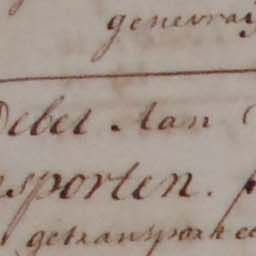 genevraij
Debet Aan
nsporten.
getransporteer